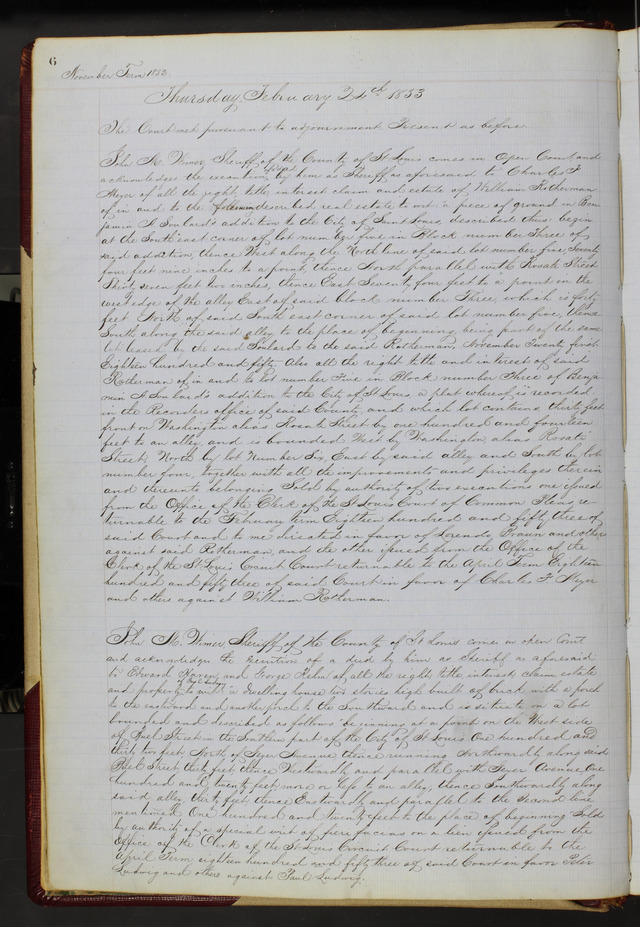 6
November Term 1852.
Thursday, February 24th 1853
The Court met pursuant to adjournment Present as before
John M. Wimer, Sheriff of the County of St Louis comes in Open Court and
acknowledges the execution by him as Sheriff as aforesaid to Charles F
Meyer of all the right, title, interest claim and estate of William Rotherman
of in and to the described real estate to wit: a piece of ground in Ben
jamin A Soulard's addition to the City of Saint Louis, described thus begin
at the South east corner of lot number five in Block number Three of
said addition, thence West along the North line of said lot number five, Seventy
four feet nine inches to a point, thence North parallel with Rosatti Street
Thirty seven feet two inches, thence East Seventy four feet to a point on the
west edge of the alley East of said block number Three, which is forty
feet North of said South east corner of said lot number five, thence
South along the said alley to the place of beginning being part of the same
lot leased by the said Soulard to the said Rotherman, November Twenty first
Eighteen hundred and fifty. Also all the right title and interest of said
Rotherman of in and to lot number Five in Block number Three of Benja
min A Soulard's addition to the City of St Louis a plat whereof is recorded
in the Recorders office of said County, and which lot contains thirty feet
front on Washington alias Rosatti Street by one hundred and fourteen
feet to an alley and is bounded West by Washington alias Rosatti
Street, North by lot Number Six, East by said alley and South by lot
number four, together with all the improvements and privileges therein
and thereunto belonging Sold by authority of two executions one issued
from the Office of the Clerk of the St Louis Court of Common Pleas re-
turnable to the February Term Eighteen hundred and fifty three of
said Court and to me directed in favor of Braun and others
against said Rotherman, and the other issued from the Office of the
Clerk of the St Louis Circuit Court returnable to the April Term Eighteen
hundred and fifty three of said Court in favor of Charles F Meyer
and others against William Rotherman.
John M. Wimer Sheriff of the County of St Louis comes in open Court
and acknowledges the execution of a deed by him as Sheriff as aforesaid
to Edward and George Rehn of all the right, title, interest, claim, estate
and property to wit: a dwelling house two stories high built of brick with a porch
to the eastward and another porch to the Southward and is situate on a lot
bounded and described as follows beginning at a point on the West side
of Buel Street in the Southern part of the City of St Louis One hundred and
thirty two feet North of Geyer Avenue thence running Northwardly along said
Buel Street thirty feet, thence Westwardly and parallel with Geyer Avenue One
hundred and twenty feet more or less to an alley, thence Southwardly along
said alley thirty feet, thence Eastwardly and parallel to the Second line
mentioned One hundred and twenty feet to the place of beginning Sold
by authority of a special writ of fieri facias on a lien issued from the
Office of the Clerk of the St Louis Circuit Court returnable to the
April Term eighteen hundred and fifty three of said Court in favor Peter
Ludwig and others against Paul Ludwig.